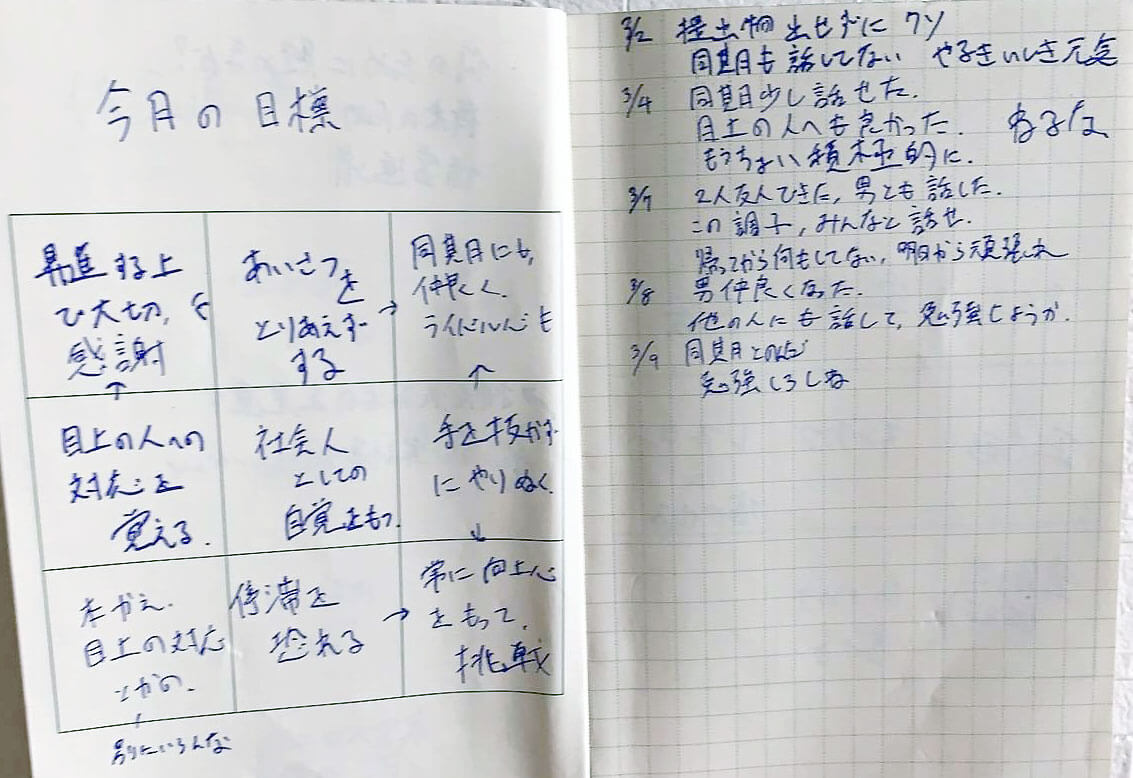 今月の目標
昇進する上
で大切、
感謝
あいさつを
とりあえず
する
同期にも、
仲良く、
ライバル心も
目上の人への
対応を
覚える.
社会人
としての
自覚をもつ.
手を抜かず
にやりぬく.
本かえ.
目上の対応
とかの.
別にいろんな
停滞を
恐れる
常に向上心
をもって、
挑戦
3/2 提出物出せずに クソ
同期も話してない やるき いしき 元気
3/4 同期少し話せた.
目上の人へも良かった. ねるな
もうちょい積極的に.
3/7 2人友人できた, 男とも話した.
この調子, みんなと話せ.
帰ってから何もしてない, 明日から頑張れ
3/8 男仲良くなった.
他の人にも話して, 勉強しようか.
3/9 同期とのんだ
勉強しろしね